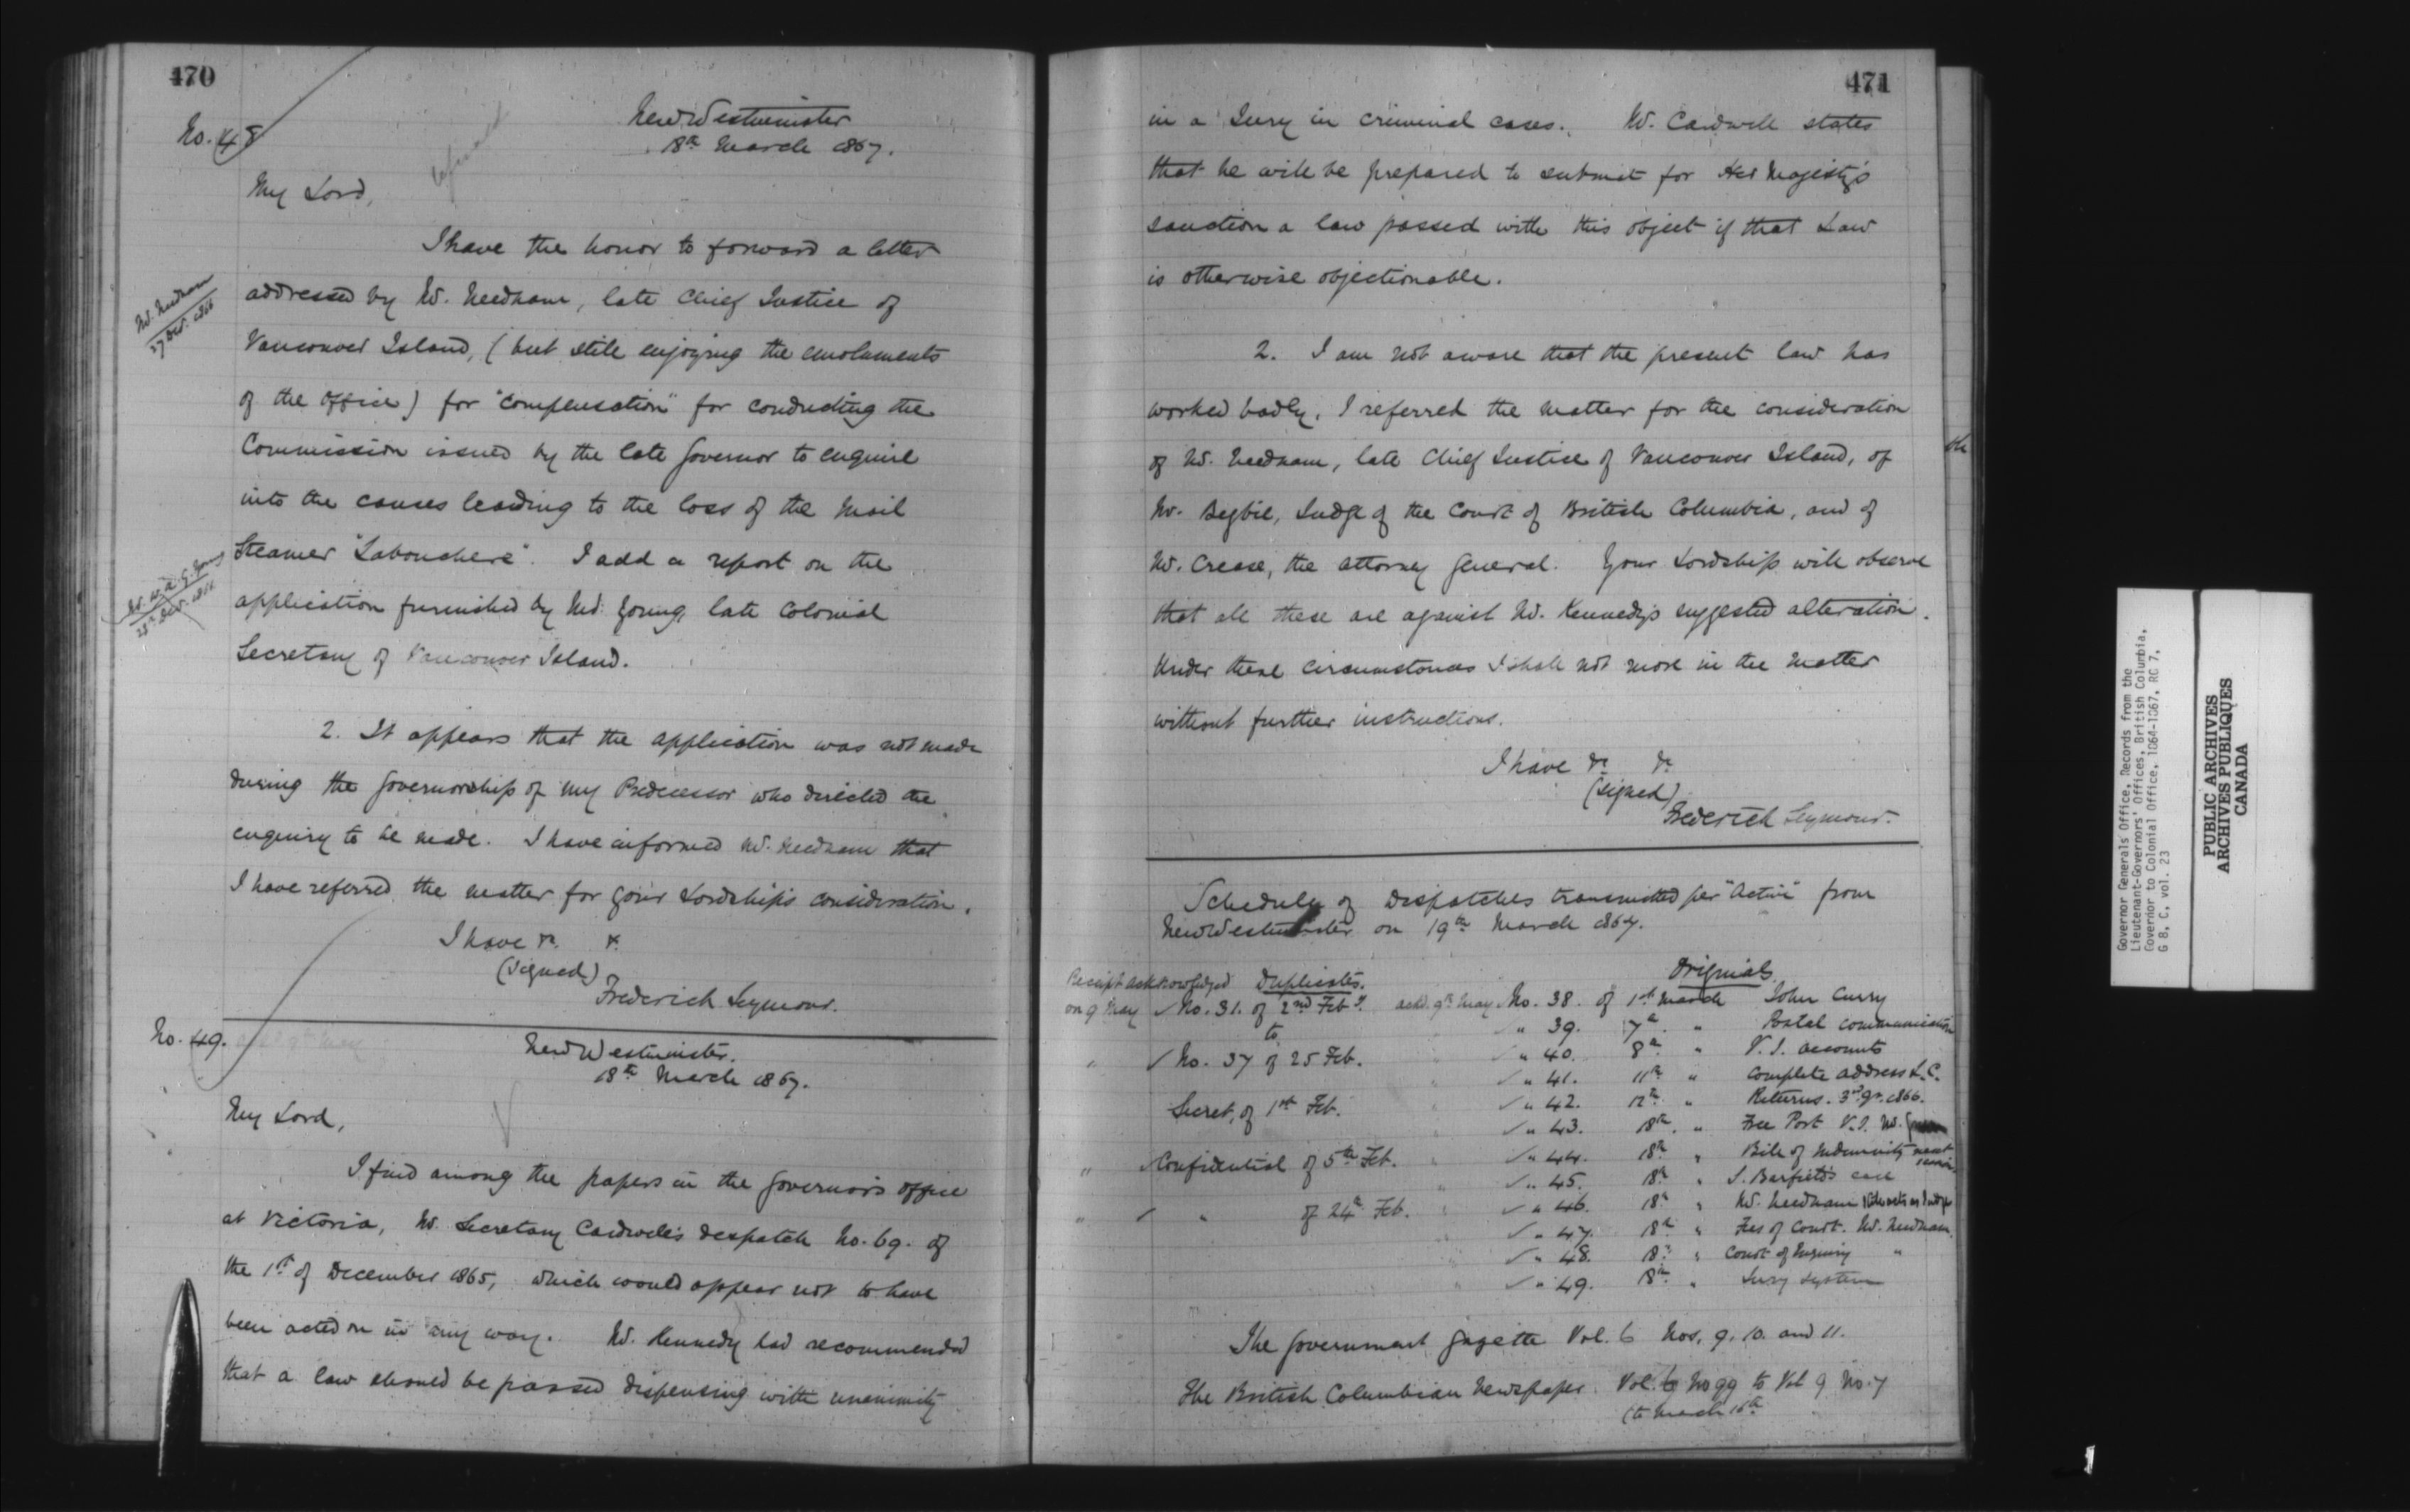 470
No. 48
New Westminster
18th March 1867.
My Lord,
I have the honor to forward a letter
addressed by Mr. Needham, late Chief Justice of
Mr. Needham
27 Dec. 1866
Vancouver Island, (but still enjoying the emoluments
of the office) for "compensation" for conducting the
Commission issued by the late Governor to enquire
into the causes leading to the loss of the Mail
Steamer "Labouchere". I add a report on the
Mr. W.A.G. Young
28th Dec. 1866
application furnished by Mr. Young, late Colonial
Secretary of Vancouver Island.
2. It appears that the application was not made
during the Governorship of my Predecessor who directed the
enquiry to be made. I have informed Mr. Needham that
I have referred the matter for your Lordship's consideration.
I have &c. &.
(signed)
Frederick Seymour.
No. 49.
New Westminster.
18th March 1867.
My Lord,
I find among the papers in the Governor's office
at Victoria, Mr. Secretary Cardwell's despatch No. 69. of
the 1st of December 1865, which would appear not to have
been acted on in any way. Mr. Kennedy had recommended
that a law should be passed dispensing with unanimity
471
in a Jury in criminal cases. Mr. Cardwell states
that he will be prepared to submit for Her Majesty's
sanction a law passed with this object if that Law
is otherwise objectionable.
2. I am not aware that the present law has
worked badly. I referred the matter for the consideration
of Mr. Needham, late Chief Justice of Vancouver Island, of
Mr. Begbie, Judge of the Court of British Columbia, and of
Mr. Crease, the Attorney General. Your Lordship will observe
that all these are against Mr. Kennedy's suggested alteration.
Under these circumstances I shall not move in the matter
without further instructions.
I have &c &c
(signed)
Frederick Seymour.
Schedule of Despatches transmitted per "Active" from
New Westminster on 19th March 1867.
Receipt acknowledged Duplicates. Originals
on 9 May ✓ No. 31. of 2nd Feby. ackd. 9th May No. 38. of 1st March John Curry
to ✓ " 39. 7th " Postal communication
" ✓ No. 37 of 25 Feb. ✓ " 40. 8th " V.I. accounts
✓ " 41. 11th " Complete address L.C.
Secret, of 1st Feb. ✓ " 42. 12th " Returns. 3rd qr. 1866.
✓ " 43. 18th " Free Port V.I. Mr.
" ✓ Confidential of 5th Feb. ✓ " 44. 18th " Bill of Indemnity next session
✓ " 45. 18th " J. Barfield's case
" ✓ " of 24th Feb. ✓ " 46. 18th " Mr. Needham still acts as Judge
✓ " 47. 18th " Fees of Court. Mr. Needham
✓ " 48. 18th " Court of Enquiry "
✓ " 49. 18th " Jury system
The Government Gazette Vol. 6 Nos. 9. 10. and 11.
The British Columbian Newspaper. Vol. 6 No 99 to Vol 9 No. 7
(to March 16th
Governor Generals' Office, Records from the
Lieutenant-Governors' Offices, British Columbia,
Governor to Colonial Office, 1864-1867, RG 7,
G 8, C, vol. 23
PUBLIC ARCHIVES
ARCHIVES PUBLIQUES
CANADA